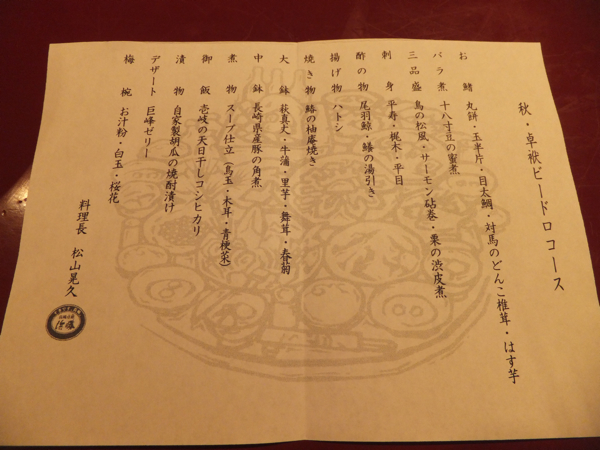 秋・卓袱ビードロコース
お鰭 丸餅・玉半片・目太鯛・対馬のどんこ椎茸・はす芋
バラ煮 十八寸豆の蜜煮
三品盛 鳥の松風・サーモン砧巻・栗の渋皮煮
刺身 平寿・梶木・平目
酢の物 尾羽鯨・鱶の湯引き
揚げ物 ハトシ
焼き物 鰆の柚庵焼き
大鉢 萩真丈・牛蒲・里芋・舞茸・春菊
中鉢 長崎県産豚の角煮
煮物 スープ仕立(鳥玉・木耳・青梗菜)
御飯 壱岐の天日干しコシヒカリ
漬物 自家製胡瓜の焼酎漬け
デザート 巨峰ゼリー
梅椀 お汁粉・白玉・桜花
料理長 松山晃久